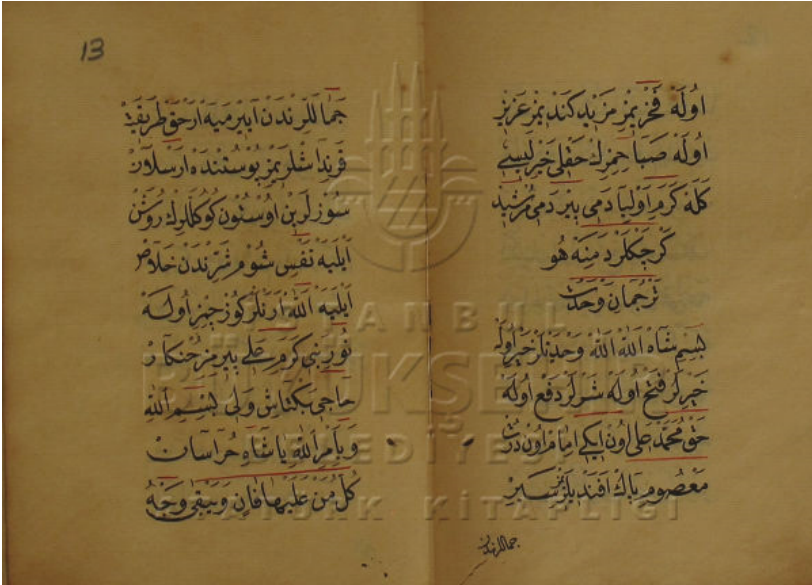 اوله فخريمز مزيد كنديمز عزيز
اوله صباحمزك حقلي خيرليسى
كله كرم اوليا دمى بير دمى مرشيد
كرچكلر دمنه هو
ترجمان وحدت
بسم شاه الله الله وحدتلر خير اوله
خيرلر فتح اوله شرلر دفع اوله
حق محمد على اون ايكى امام اون دورت
معصوم پاك افنديلريمز بير
جماللرندن
13
جماللرندن آييرميه ار حق طريقت
قرنداشلريمز پوستنده ارسلان
سوزلرين اوستون كوكللرك روشن
ايليه نفس شوم شرندن خلاص
ايليه الله ارنلر كوزجيز اوله
نور نبى كرم على بيرمز خنكار
حاجى بكتاش ولى بسم الله
وبامر الله يا شاه خراسان
كل من عليها فان ويبقى وجه
ISTANBUL
BÜYÜKŞEHİR
BELEDİYESİ
ATATÜRK KİTAPLIĞI